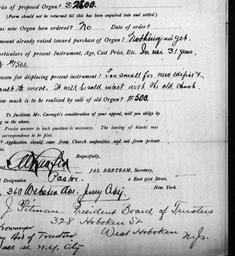 Price of proposed Organ? $2600.
(Form should not be returned till this has been inquired into and settled.)
new Organ been ordered? No Date of order?
amount already raised toward purchase of Organ? Nothing as yet.
Particulars of present Instrument, Age, Cost Price, Etc. In use 31 years.
$1500.
Reason for displacing present instrument? Too small for new edifice &
to move. It will be sold intact with the old church.
much is to be realized by sale of old Organ? $500.
To facilitate Mr. Carnegie's consideration of your appeal, will you oblige by
filling in the above.
Precise answer to each question is necessary. The leaving of blanks
correspondence to be required.
Application should come from Church authorities and not from private
Respectfully,
JAS. BERTRAM, Secretary,
Designation Pastor. 2 East 91st Street,
New York.
360 Webster Ave. Jersey City.
J. Pitman President Board of Trustees
328 Hoboken St
West Hoboken N.J.
Board of Trustees
N.Y. City